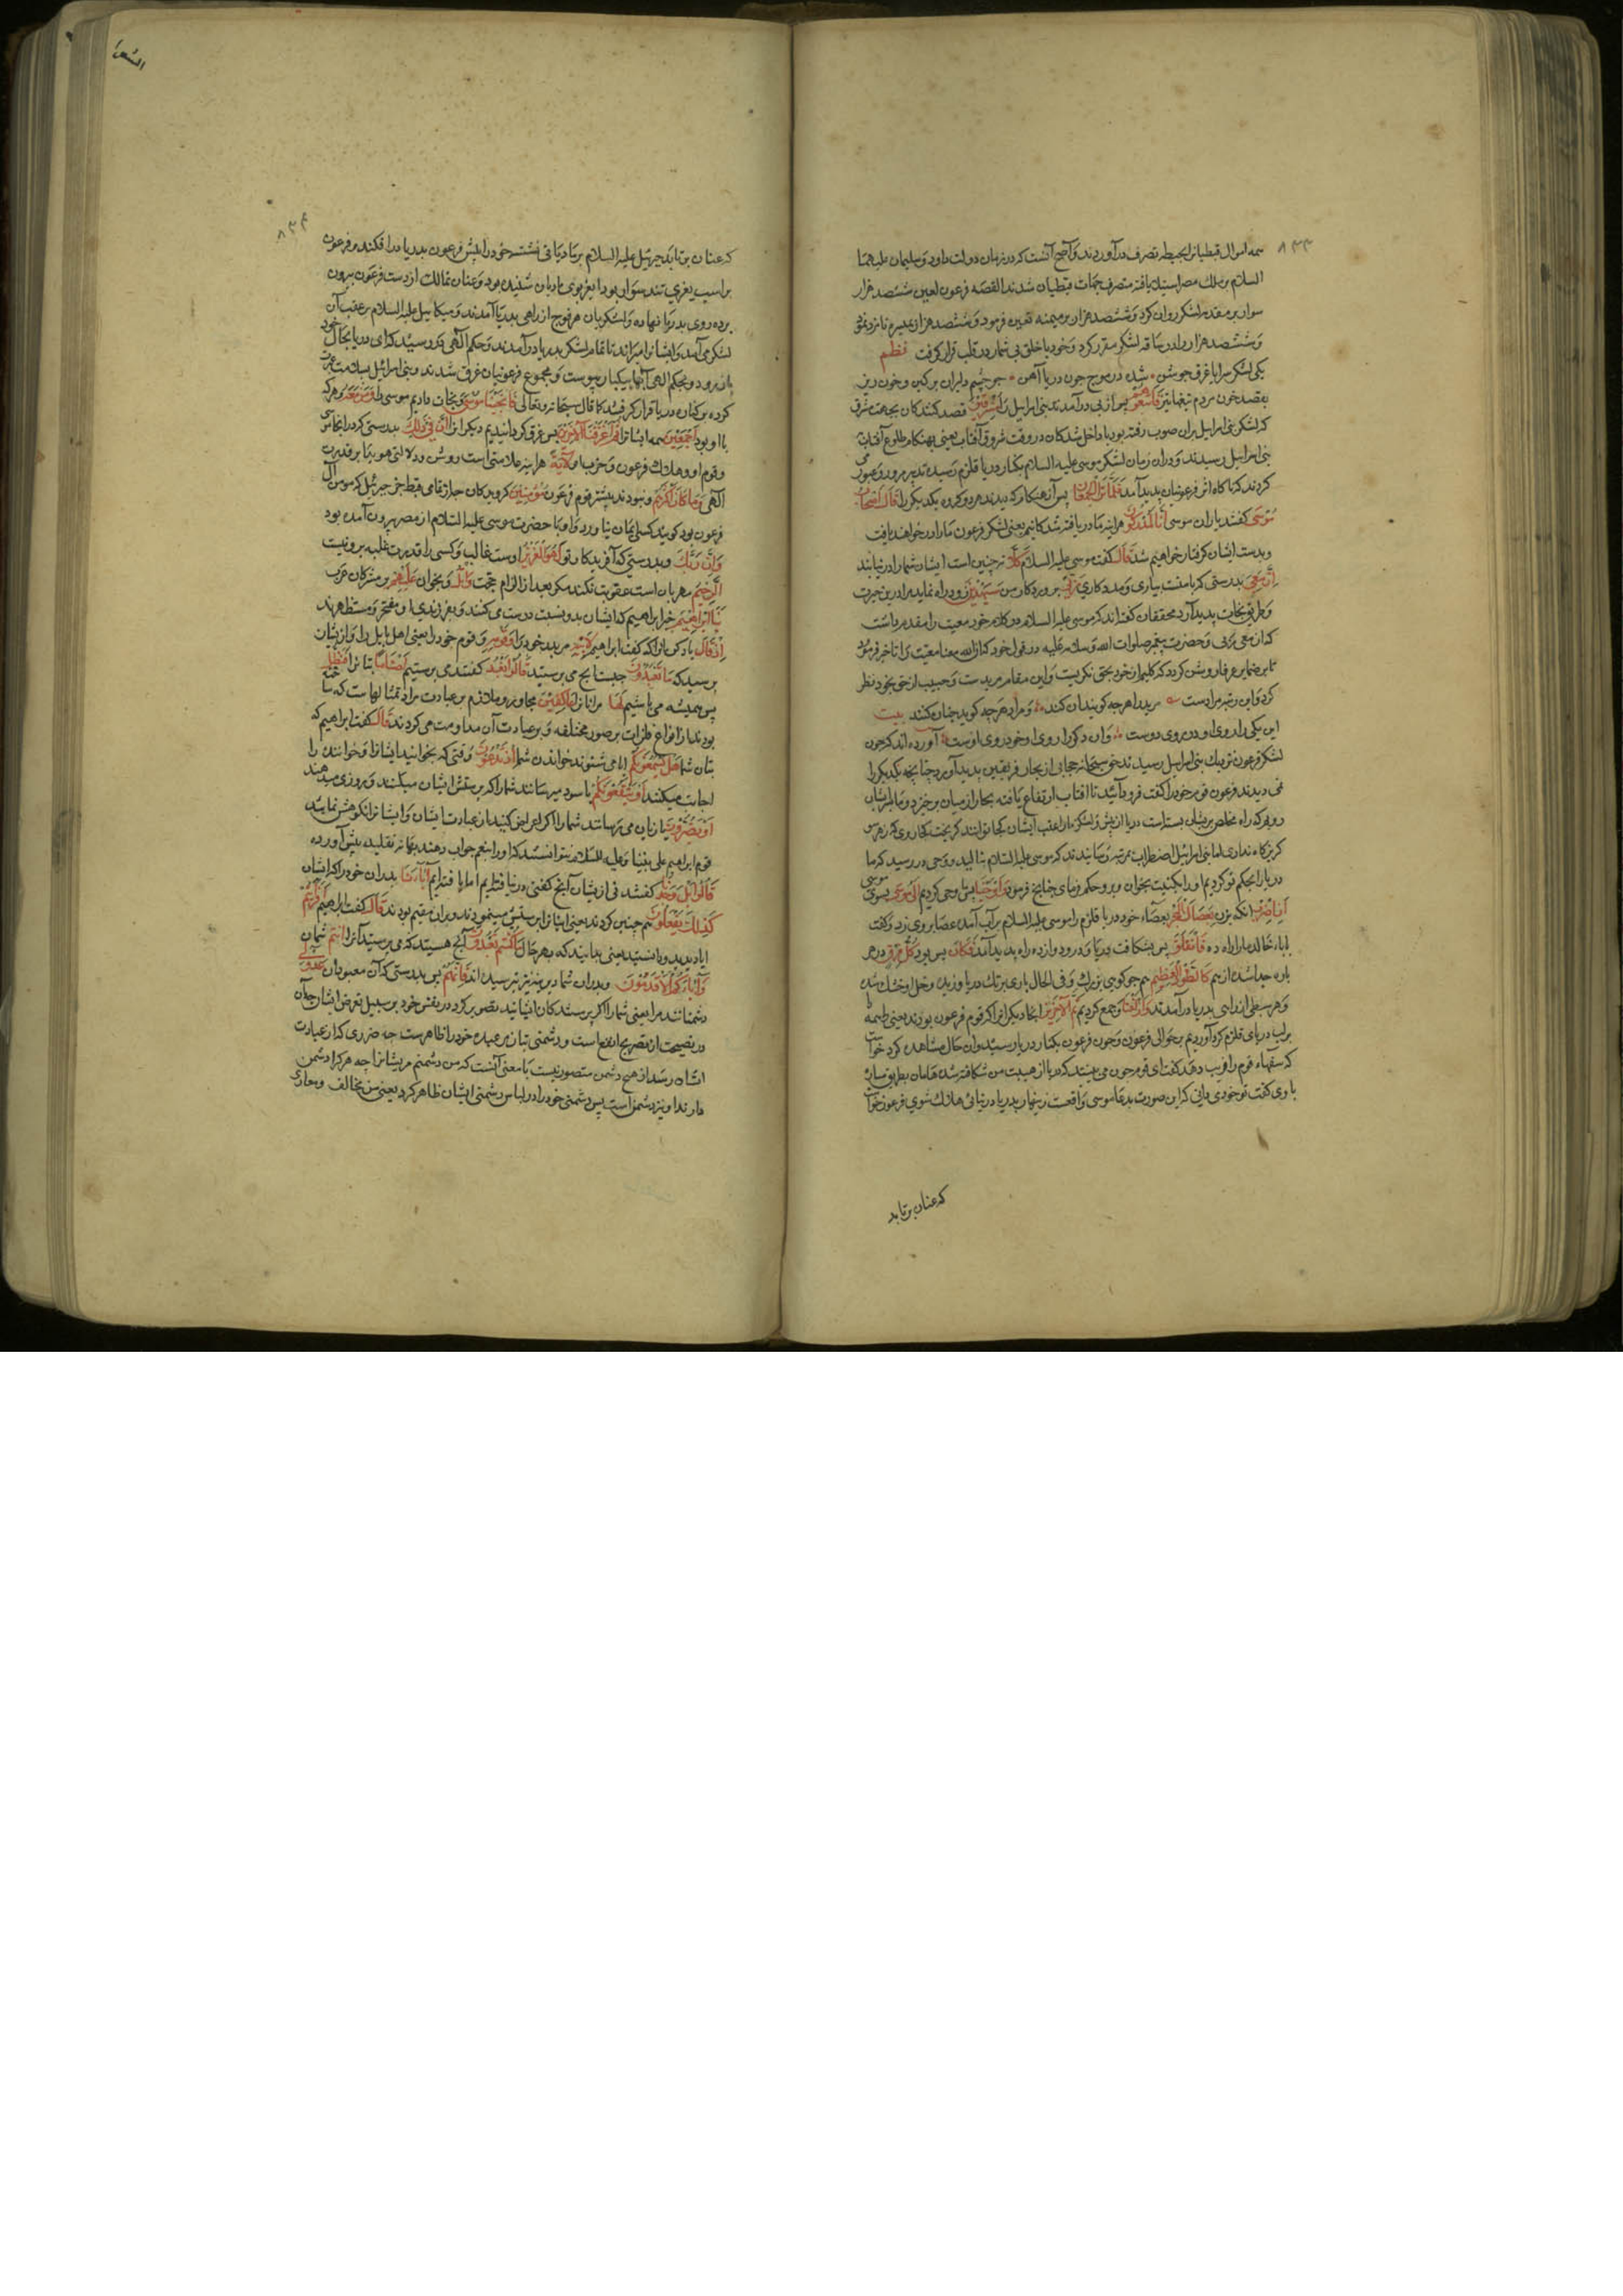 ۸۳۳
همه اموال قبطیانرا بحیطه تصرف درآوردند و اصح آنست که در زمان دولت داود و سلیمان علیهما
السلام بر ملک مصر استیلا یافته متصرف جهات قبطیان شدند القصه فرعون لعین ششصد هزار
سوار بر مقدمه لشکر روان کرد و ششصد هزار بر میمنه تعیین فرمود و ششصد هزار بمیسره نامزد نمود
و ششصد هزار را در ساقه لشکر مقرر کرد و خود با خلق بی شمار در قلب قرار گرفت نظم
یکی لشکر سراپا غرق جوشن شده در موج چون دریا آهن چو چشم دلبران پر کین و خون ریز
بقصد خون مردم تیغها تیز فَاَتْبَعُوهُمْ پس از پی درآمدند بنی اسرائیل را مُشْرِقِينَ قصد کنندکان بجهت شرق
که لشکر بنی اسرائیل بران صوب رفته بود یا داخل شدکان در وقت شروق آفتاب یعنی بهنکام طلوع آفتاب
بنی اسرائیل رسیدند و دران زمان لشکر موسی علیه السلام بکنار دریا قلزم رسیده تدبیر مرور و عبور می
کردند که ناکاه اثر فرعونیان پدید آمد فَلَمَّا تَرَاءَ الْجَمْعَانِ پس آن هنکام که دیدند هر دو کروه یکدیکر را قَالَ اَصْحَابُ
مُوسَى گفتند یاران موسی اِنَّا لَمُدْرَكُونَ هر اینه ما دریافته شدکانیم یعنی لشکر فرعون ما را در خواهند یافت
و بدست ایشان گرفتار خواهیم شد قَالَ گفت موسی علیه السلام كَلَّا نه چنین است ایشان شما را درنیابند
اِنَّ مَعِيَ بدرستی که با منست بیاری و مددکاری رَبِّي پروردکار من سَيَهْدِينِ زود راه نماید مرا درین حیرت
و طریق نجات پدید آرد محققان گفته اند که موسی علیه السلام در کلام خود معیت را مقدم داشت
که ان معی ربی و حضرت پیغمبر صلوات الله و سلامه علیه در قول خود که ان الله معنا معیت را تاخیر فرمود
تا بر ضمایر عرفا روشن کردد که کلیم از خود بحق نکریست و این مقام مریدست و حبیب از حق بخود نظر
کرد و این رتبه مراد است مرید را هر چه کویند آن کند و مراد هر چه کوید چنان کنند بیت
این یکی را روی او در روی دوست وان دکر را روی او خود روی اوست آورده اند که چون
لشکر فرعون نزدیک بنی اسرائیل رسیدند حق سبحانه حجابی از بخار فریقین پدید آورد چنانچه یکدیکر را
نمی دیدند فرعون قوم خود را کفت فرود آئید تا آفتاب ارتفاع یافته بخار از میان برخیزد و
که راه مخلص بریشان بسته است دریا از پیش و لشکر ما از عقب ایشان کجا توانند کریخت
کریزکاه نداری اما بنی اسرائیل اضطراب بمرتبه رسانیدند که موسی علیه السلام بنالید و وحی در رسید که ما
دریا را بحکم تو کردیم او را بکنیت بخوان و برو حکم فرمای چنانچ فرمود فَاَوْحَيْنَا پس وحی کردیم اِلَى مُوسَى بسوی موسی
اَنِ اضْرِبْ انکه بزن بِعَصَاكَ الْبَحْرَ بعصاء خود دریا قلزم را موسی علیه السلام بر لب آب آمده عصا بر وی زد و کفت
یا ابا خالد ما را راه ده فَانْفَلَقَ پس بشکافت دریا و درو دوازده راه پدید آمد فَكَانَ پس بود كُلُّ فِرْقٍ هر
پاره جدا شده از هم كَالطَّوْدِ الْعَظِيمِ همچو کوهی بزرک و فی الحال بادی بر تک دریا وزید و وحل او خشک شد
و هر سبطی از راهی بدریا درآمدند وَاَزْلَفْنَا و جمع کردیم ثَمَّ الْاٰخَرِينَ انجا دیکرانرا که قوم فرعون بودند یعنی همه را
بر لب دریای قلزم کرد آوردیم بر حوالی فرعون و چون فرعون بکنار دریا رسید و آن حال مشاهده کرد خواست
که سفهاء قوم را فریب دهد گفت ای قوم چون می بینید که دریا از هیبت من شکافته شد هامان بطریق مسارّه
با وی کفت تو خود می دانی که این صورت بدعا موسی واقعست زینهار بدریا درنیائی که هلاک شوی فرعون خواست
که عنان برتابد
۸۳۴
که عنان برتابد جبرئیل علیه السلام بر مادیانی نشسته خود را پیش فرعون بدریا درافکند و فرعون
بر اسپ نعری تند سوار بود اسپ بوی مادیان شنیده بود و عنان تمالک از دست فرعون بیرون
برده روی بدریا نهاد و لشکریان هر فوج از راهی بدریا آمدند و میکائیل علیه السلام بر عقب آن
لشکر می آمد و ایشانرا میراند تا تمام لشکر بدریا درآمدند و حکم الهی در رسید که ای دریا بحال خود
باز رو و بحکم الهی آبها بیکبار پیوست و مجموع فرعونیان غرق شدند و بنی اسرائیل بسلامت عبور
کرده بر کنار دریا قرار کرفتند کما قال سبحانه و تعالی فَاَنْجَيْنَا مُوسَى و نجات دادیم موسی را وَمَنْ مَعَهُ و هر که
با او بود اَجْمَعِينَ همه ایشانرا ثُمَّ اَغْرَقْنَا الْاٰخَرِينَ پس غرق کردانیدیم دیکرانرا اِنَّ فِي ذٰلِكَ بدرستی که در انجاء موسی
و قوم او و هلاک فرعون و حزب او لَاٰيَةً هر اینه علامتی است روشن و دلالتی هویدا بر قدرت
الهی وَمَا كَانَ اَكْثَرُهُمْ و نبودند بیشتر قوم فرعون مُؤْمِنِينَ کرویدکان چه از تمامی قبط جز جبرئیل که مومن آل
فرعون بود کویند کسی ایمان نیاورد و او با حضرت موسی علیه السلام از مصر بیرون آمده بود
وَاِنَّ رَبَّكَ و بدرستی که آفریدکار تو لَهُوَ الْعَزِيزُ اوست غالب و کسی را قدرت غلبه برو نیست
الرَّحِيمُ مهربان است عقوبت نکند مکر بعد از الزام حجت وَاتْلُ و بخوان عَلَيْهِمْ بر مشرکان عرب
نَبَاَ اِبْرٰهِيمَ خبر ابراهیم که ایشان بدو نسبت درست می کنند و بفرزندی او مفتخر و مستظهرند
اِذْ قَالَ یاد کن انرا که کفت ابراهیم لِاَبِيهِ مر پدر خود را وَقَوْمِهِ و قوم خود را یعنی اهل بابل را و ازیشان
پرسید که مَا تَعْبُدُونَ چیست آنچ می پرستید قَالُوا نَعْبُدُ کفتند می پرستیم اَصْنَامًا بتانرا فَنَظَلُّ
پس همیشه می باشیم لَهَا مر انانرا عَاكِفِينَ مجاور و ملازم بر عبادت مراد تمثالهاست که ساخته
بودند از انواع فلزات بر صور مختلفه و بر عبادت آن مداومت می کردند قَالَ کفت ابراهیم که
بتان شما هَلْ يَسْمَعُونَكُمْ ایا می شنوند خواندن شما اِذْ تَدْعُونَ وقتی که بخوانید ایشانرا و خوانندن را
اجابت میکنند اَوْ يَنْفَعُونَكُمْ یا سود میرسانند شما را که پرستش ایشان میکنند و روزی میدهند
اَوْ يَضُرُّونَ یا زیان می رسانند شما را اکر اعراض کنید از عبادت ایشان و ایشانرا نکوهش نمائید
قوم ابراهیم علی نبینا و علیه السلام نتوانستند که او را بنعم جواب دهند بهانه تقلید پیش آورده
قَالُوا بَلْ وَجَدْنَا کفتند نی ازیشان آنچ کفتی درنیافتیم اما یافته ایم اٰبَاءَنَا پدران خود را که ایشان
كَذٰلِكَ يَفْعَلُونَ هم چنین کردند یعنی ایشانرا پرستش مینمودند و بران مقیم بودند قَالَ کفت ابراهیم اَفَرَاَيْتُمْ
ایا دیدید و دانستید یعنی بدانید که بهر حال مَا كُنْتُمْ تَعْبُدُونَ آنچ هستید که می پرستید آنرا اَنْتُمْ شمایان
وَاٰبَاؤُكُمُ الْاَقْدَمُونَ و پدران شما که پیش ازین نیز پرستیده اند فَاِنَّهُمْ پس بدرستی که آن معبودان عَدُوٌّ لِي
دشمنانند مرا یعنی شما را که پرستندکان ایشانید تصویر کرد در نفس خود بر سبیل تعریض ایشان چه آن
در نصیحت از تصریح انفع است و دشمنی بتان مر عبده خود را ظاهرست چه ضرری که از عبادت
ایشان رسد از هیچ دشمن متصور نیست یا معنی آنست که من دشمنم مریشانرا چه هر کرا دشمن
دارند او نیز دشمن است پس دشمنی خود را در لباس دشمنی ایشان ظاهر کرد یعنی من مخالف و معادی